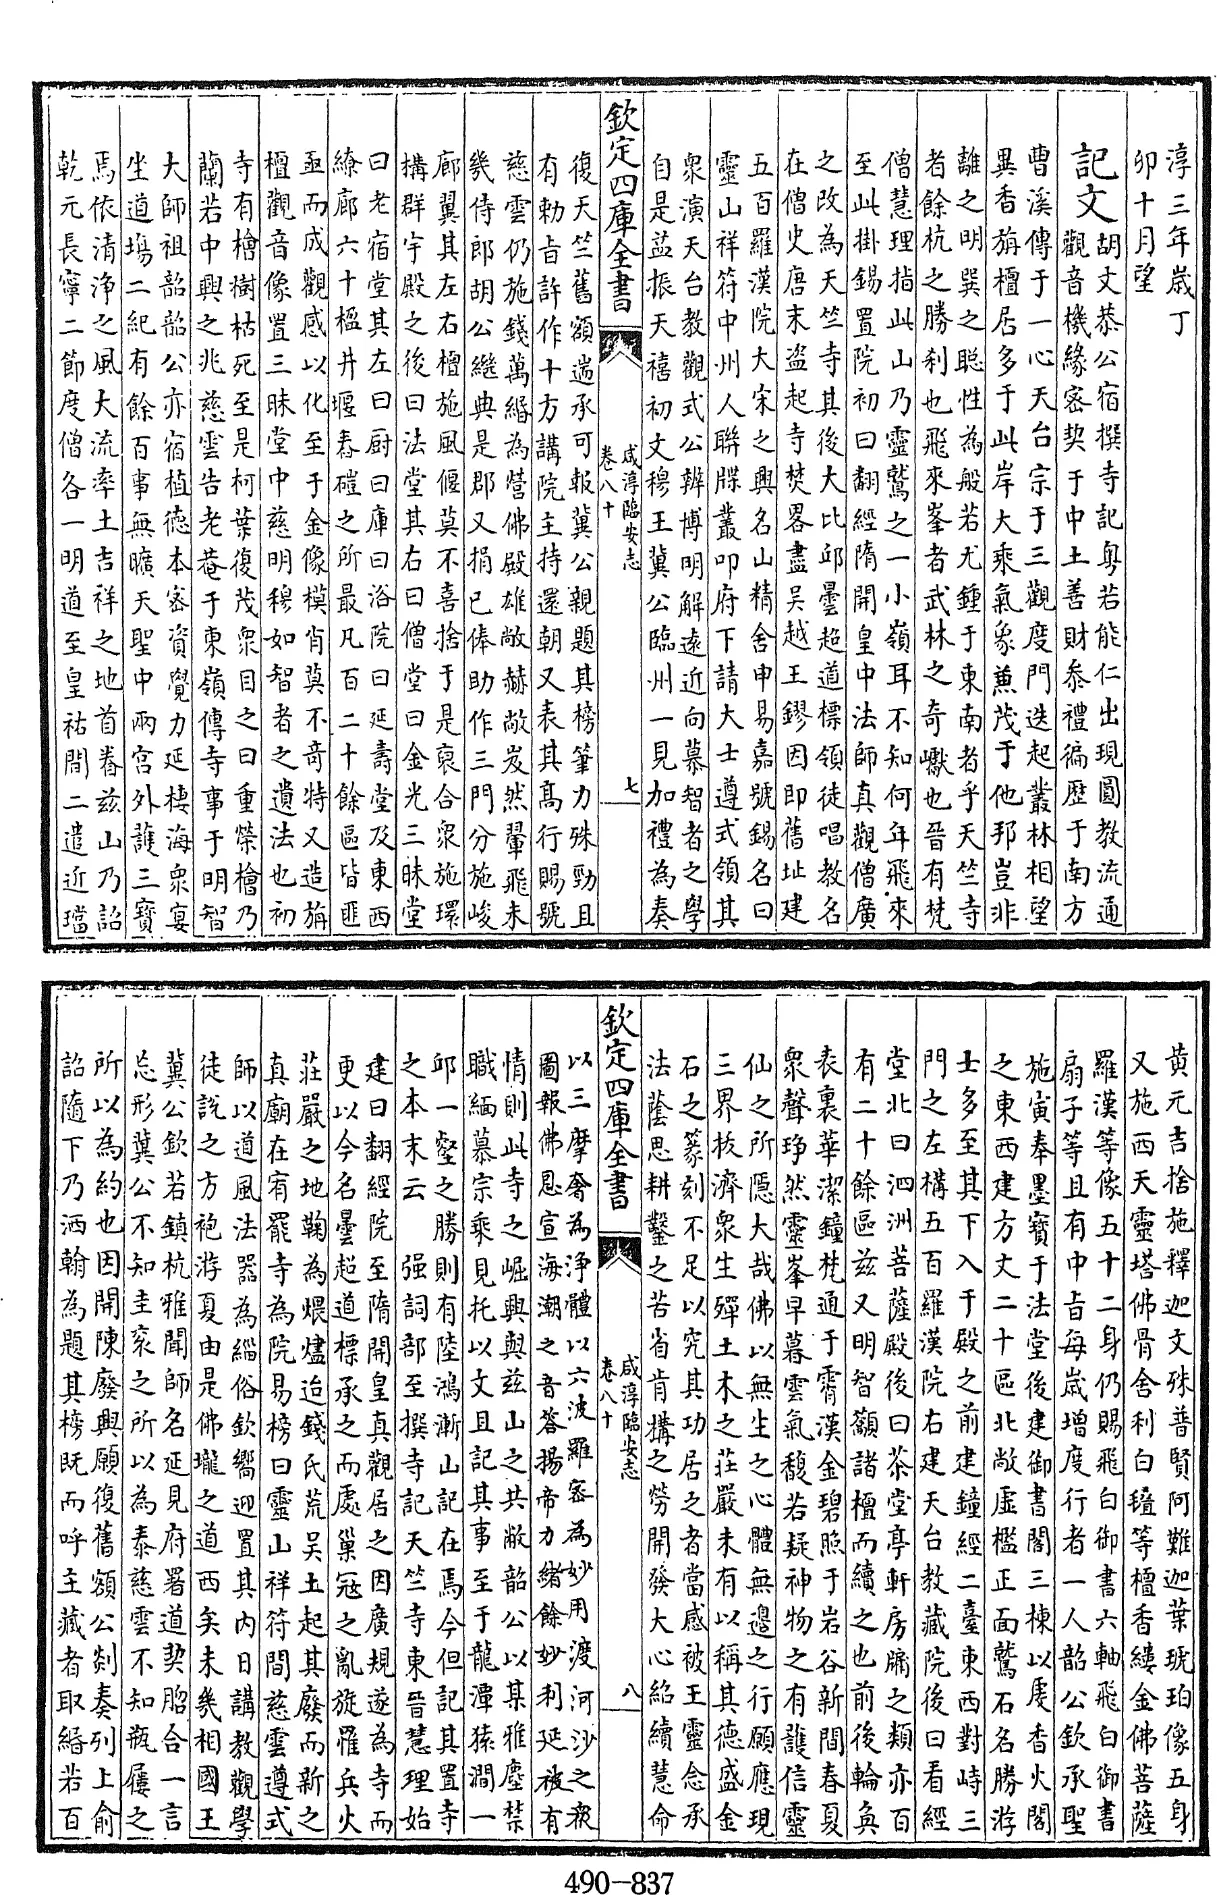 淳三年歲丁
卯十月望
記文
胡文恭公宿撰寺記粤若能仁出現圓教流通
觀音機緣宻契于中土善財叅禮徧歴于南方
曹溪傳于一心天台宗于三觀度門迭起叢林相望
異香旃檀居多于此岸大乘氣象蕙茂于他邦豈非
離之明巽之聰性為般若尤鍾于東南者乎天竺寺
者餘杭之勝刹也飛來峯者武林之奇巘也晉有梵
僧慧理指此山乃靈鷲之一小嶺耳不知何年飛來
至此掛錫置院初曰翻經隋開皇中法師真觀僧廣
之改為天竺寺其後大比邱曇超道標領徒唱教名
在僧史唐末盗起寺焚畧盡吳越王鏐因即舊址建
五百羅漢院大宋之興名山精舍申易嘉號錫名曰
靈山祥符中州人聯牒叢叩府下請大士遵式領其
衆演天台教觀式公辨博明解遠近向慕智者之學
自是益振天禧初文穆王冀公臨州一見加禮為奏
欽定四庫全書
咸淳臨安志
卷八十
七
復天竺舊額遄承可報冀公親題其榜筆力殊勁且
有勅旨許作十方講院主持還朝又表其髙行賜號
慈雲仍施錢萬緡為營佛殿雄敞赫敞岌然翬飛未
幾侍郎胡公繼典是郡又捐己俸助作三門分施峻
廊翼其左右檀施風偃莫不喜捨于是裒合衆施環
搆群宇殿之後曰法堂其右曰僧堂曰金光三昧堂
曰老宿堂其左曰厨曰庫曰浴院曰延壽堂及東西
繚廊六十楹井堰舂磑之所最凡百二十餘區皆匪
亟而成觀感以化至于金像模肖莫不竒特又造旃
檀觀音像置三昧堂中慈明穆如智者之遺法也初
寺有檜樹枯死至是柯葉復茂衆目之曰重榮檜乃
蘭若中興之兆慈雲告老菴于東嶺傳寺事于明智
大師祖韶韶公亦宿植德本宻資覺力延棲海衆宴
坐道塲二紀有餘百事無曠天聖中兩宫外護三寶
焉依清浄之風大流率土吉祥之地首眷兹山乃詔
乾元長寧二節度僧各一明道至皇祐間二遣近璫
黄元吉捨施釋迦文殊普賢阿難迦葉琥珀像五身
又施西天靈塔佛骨舍利白氎等檀香縷金佛菩薩
羅漢等像五十二身仍賜飛白御書六軸飛白御書
扇子等且有中旨每嵗增度行者一人韶公欽承聖
施寅奉墨寶于法堂後建御書閣三棟以庋香火閣
之東西建方丈二十區北敞虚檻正面鷲石名勝游
士多至其下入于殿之前建鐘經二臺東西對峙三
門之左構五百羅漢院右建天台教藏院後曰看經
堂北曰泗洲菩薩殿後曰茶堂亭軒房牖之類亦百
有二十餘區兹又明智籲諸檀而續之也前後輪奐
表裏華潔鐘梵通于霄漢金碧照于岩谷新間春夏
衆聲琤然靈峯早暮雲氣馥若疑神物之有護信靈
仙之所隱大哉佛以無生之心體無邊之行願應現
三界抜濟衆生殫土木之莊嚴未有以稱其德盛金
石之篆刻不足以究其功居之者當感被王靈念承
法蔭思耕鑿之苦省肯搆之勞開發大心紹續慧命
欽定四庫全書
咸淳臨安志
卷八十
八
以三摩奢為浄體以六波羅宻為妙用渡河沙之衆
圖報佛恩宣海潮之音荅揚帝力緒餘妙利延被有
情則此寺之崛興與兹山之共敝韶公以某雅塵禁
職緬慕宗乘見托以文且記其事至于龍潭猿澗一
邱一壑之勝則有陸鴻漸山記在焉今但記其置寺
之本末云
强詞部至撰寺記天竺寺東晉慧理始
建曰翻經院至隋開皇真觀居之因廣規遂為寺而
更以今名曇超道標承之而處巢冦之亂旋罹兵火
莊嚴之地鞠為煨燼迨錢氏荒吳土起其廢而新之
真廟在宥罷寺為院易榜曰靈山祥符間慈雲遵式
師以道風法器為緇俗欽嚮迎置其内日講教觀學
徒説之方袍游夏由是佛壠之道西矣未幾相國王
冀公欽若鎮杭雅聞師名延見府署道契脗合一言
忘形冀公不知圭衮之所以為泰慈雲不知瓶屨之
所以為約也因開陳廢興願復舊額公剡奏列上俞
詔隨下乃洒翰為題其榜既而呼主藏者取緡若百
490-837